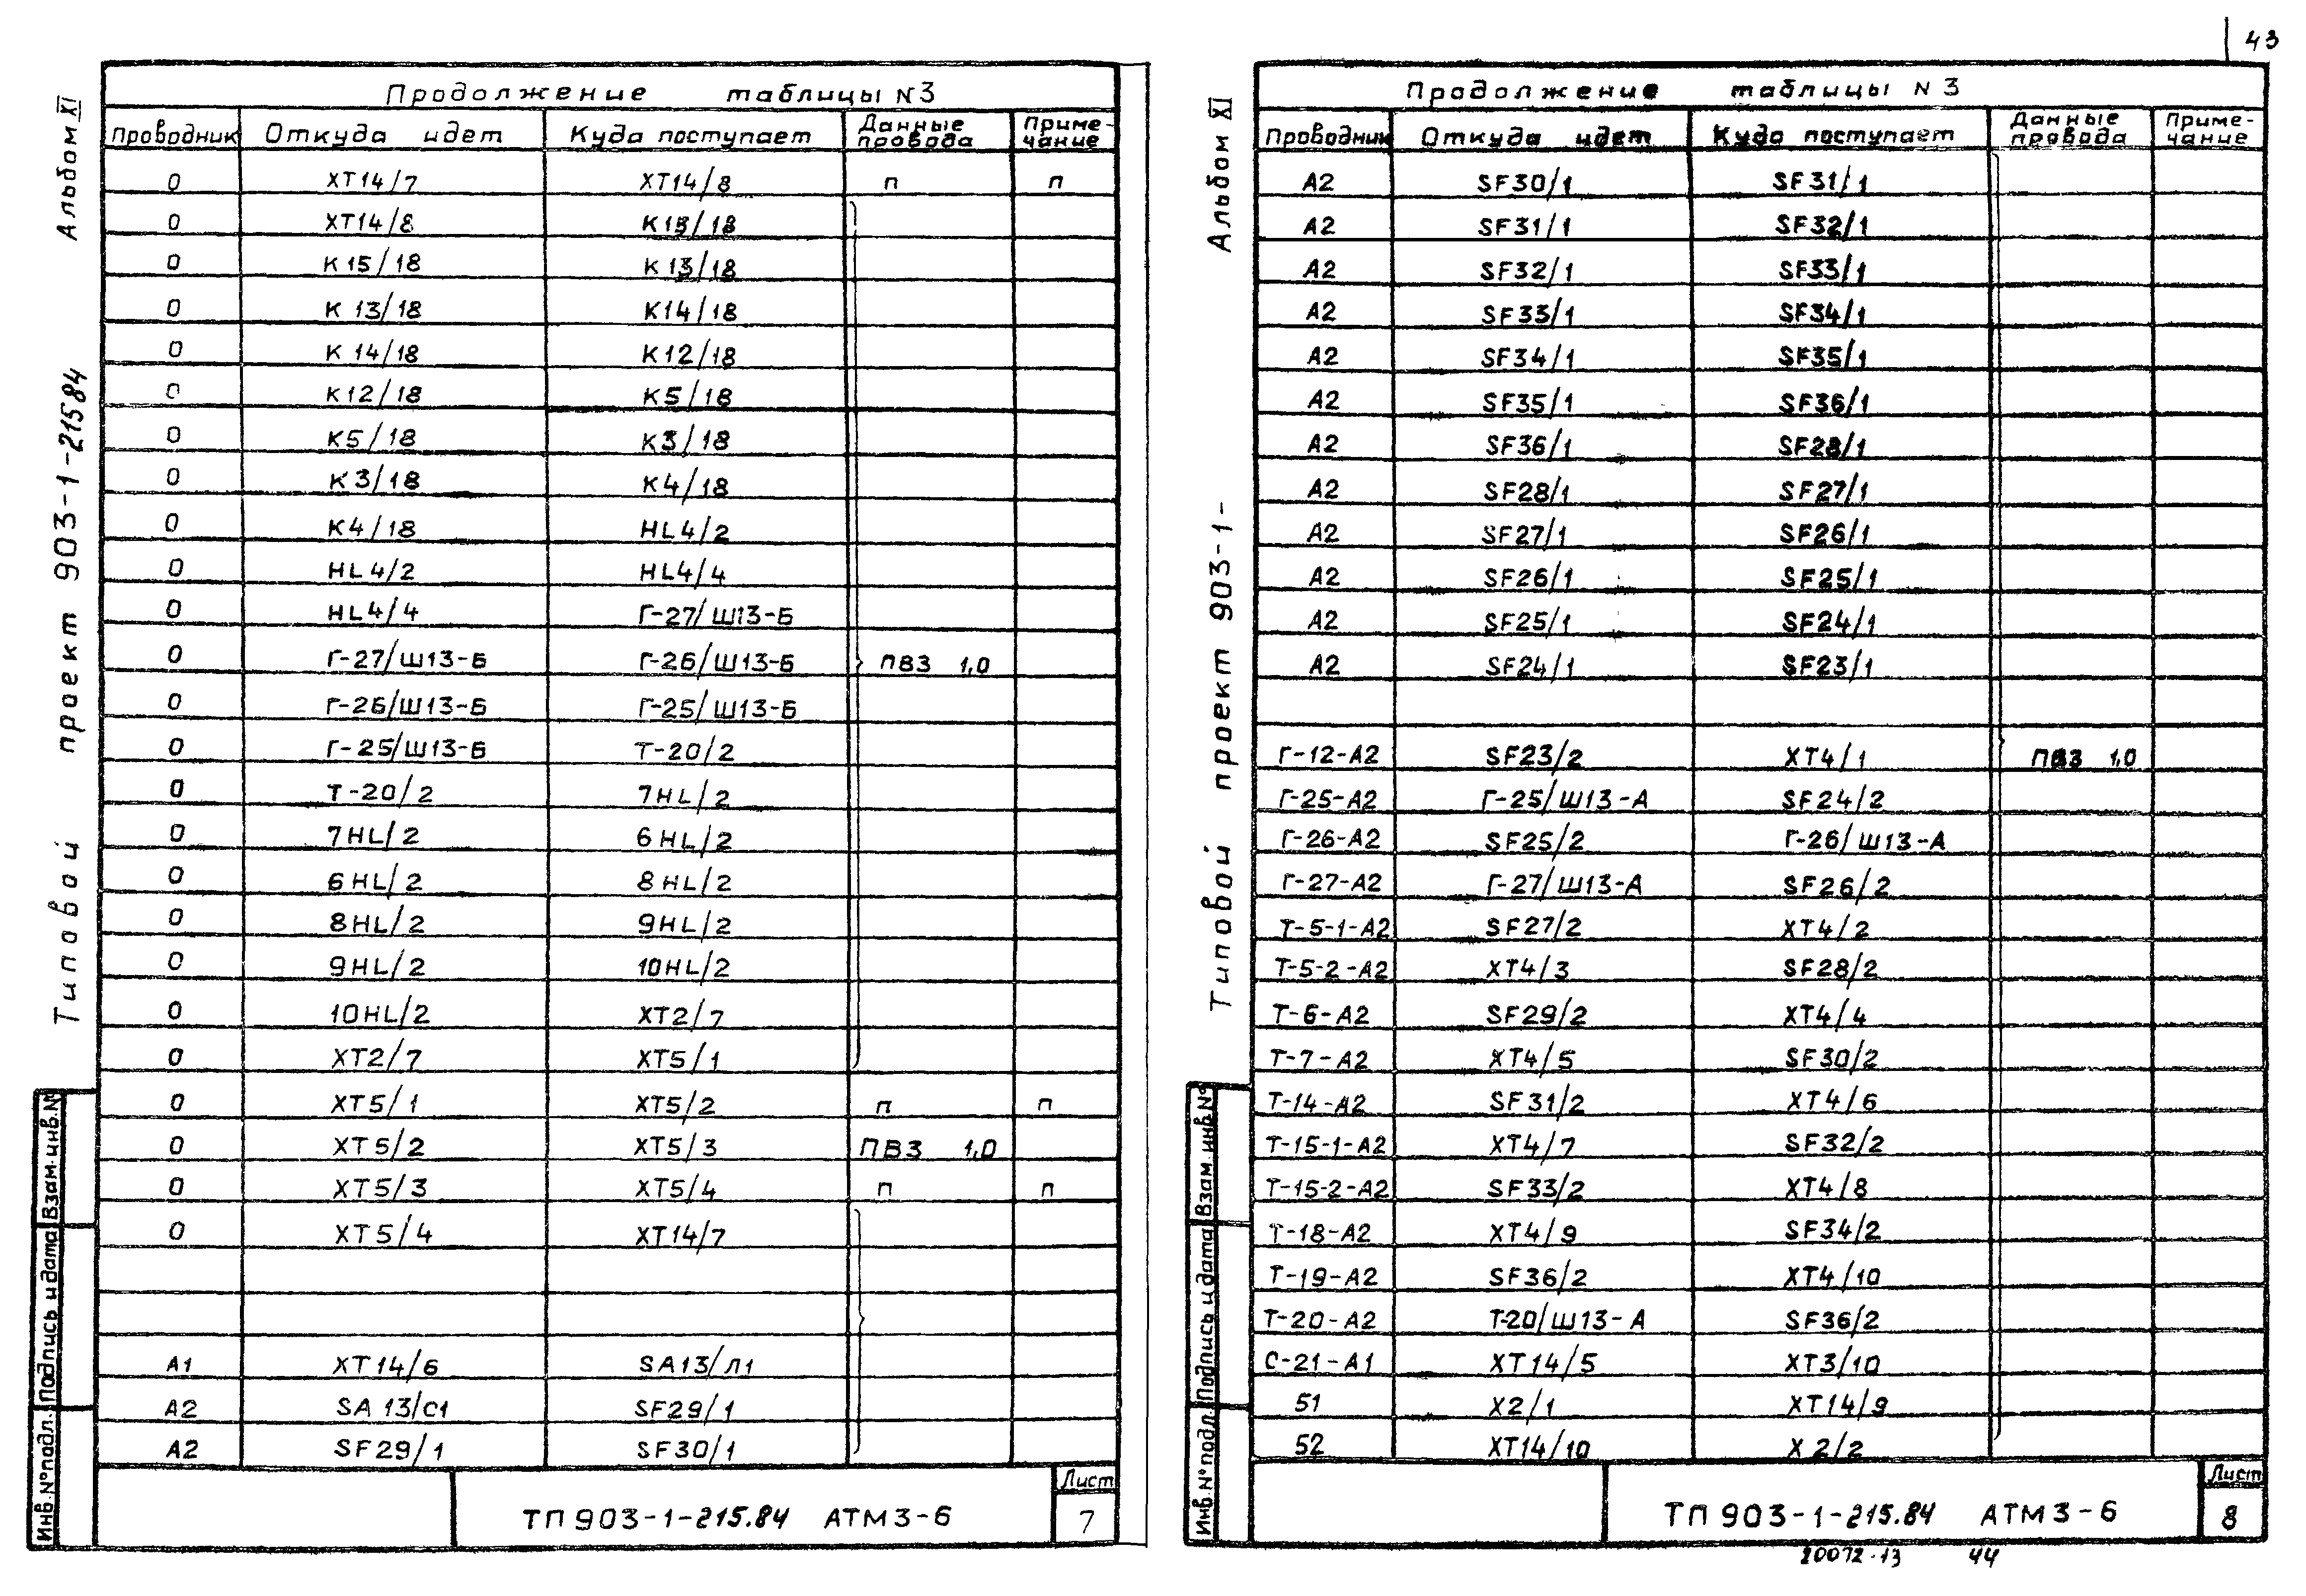 43
Альбом XI
Типовой проект 903-1-215.84
Продолжение таблицы N3
Проводник Откуда идет Куда поступает Данные провода Приме-чание
0 XT14/7 XT14/8 п п
0 XT14/8 K15/18
0 K15/18 K13/18
0 K13/18 K14/18
0 K14/18 K12/18
0 K12/18 K5/18
0 K5/18 K3/18
0 K3/18 K4/18
0 K4/18 HL4/2
0 HL4/2 HL4/4
0 HL4/4 Г-27/Ш13-Б
0 Г-27/Ш13-Б Г-26/Ш13-Б ПВ3 1,0
0 Г-26/Ш13-Б Г-25/Ш13-Б
0 Г-25/Ш13-Б Т-20/2
0 Т-20/2 7HL/2
0 7HL/2 6HL/2
0 6HL/2 8HL/2
0 8HL/2 9HL/2
0 9HL/2 10HL/2
0 10HL/2 XT2/7
0 XT2/7 XT5/1
0 XT5/1 XT5/2 п п
0 XT5/2 XT5/3 ПВ3 1,0
0 XT5/3 XT5/4 п п
0 XT5/4 XT14/7
A1 XT14/6 SA13/Л1
A2 SA13/C1 SF29/1
A2 SF29/1 SF30/1
Инв. № подл. Подпись и дата Взам. инв. №
ТП 903-1-215.84 АТМ3-6
Лист
7
Альбом XI
Типовой проект 903-1-
Продолжение таблицы N 3
Проводник Откуда идет Куда поступает Данные провода Приме-чание
A2 SF30/1 SF31/1
A2 SF31/1 SF32/1
A2 SF32/1 SF33/1
A2 SF33/1 SF34/1
A2 SF34/1 SF35/1
A2 SF35/1 SF36/1
A2 SF36/1 SF28/1
A2 SF28/1 SF27/1
A2 SF27/1 SF26/1
A2 SF26/1 SF25/1
A2 SF25/1 SF24/1
A2 SF24/1 SF23/1
Г-12-А2 SF23/2 XT4/1 ПВ3 1,0
Г-25-А2 Г-25/Ш13-А SF24/2
Г-26-А2 SF25/2 Г-26/Ш13-А
Г-27-А2 Г-27/Ш13-А SF26/2
Т-5-1-А2 SF27/2 XT4/2
Т-5-2-А2 XT4/3 SF28/2
Т-6-А2 SF29/2 XT4/4
Т-7-А2 XT4/5 SF30/2
Т-14-А2 SF31/2 XT4/6
Т-15-1-А2 XT4/7 SF32/2
Т-15-2-А2 SF33/2 XT4/8
Т-18-А2 XT4/9 SF34/2
Т-19-А2 SF36/2 XT4/10
Т-20-А2 Т-20/Ш13-А SF36/2
С-21-А1 XT14/5 XT3/10
51 X2/1 XT14/9
52 XT14/10 X2/2
Инв. № подл. Подпись и дата Взам. инв. №
ТП 903-1-215.84 АТМ3-6
Лист
8
20072-13 44